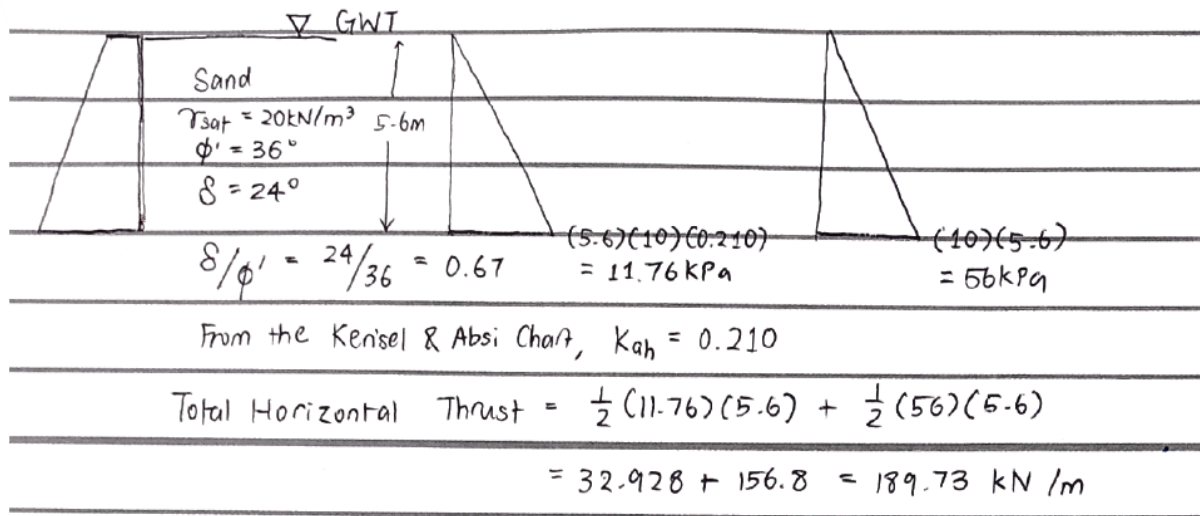 ▽ GWT
Sand
γsat = 20kN/m³ 5.6m
ϕ' = 36°
δ = 24°
(5.6)(10)(0.210)
= 11.76 kPa
(10)(5.6)
= 56kPa
δ/ϕ' = 24/36 = 0.67
From the Kerisel & Absi Chart, Kah = 0.210
Total Horizontal Thrust = ½ (11.76)(5.6) + ½ (56)(5.6)
= 32.928 + 156.8 = 189.73 kN/m